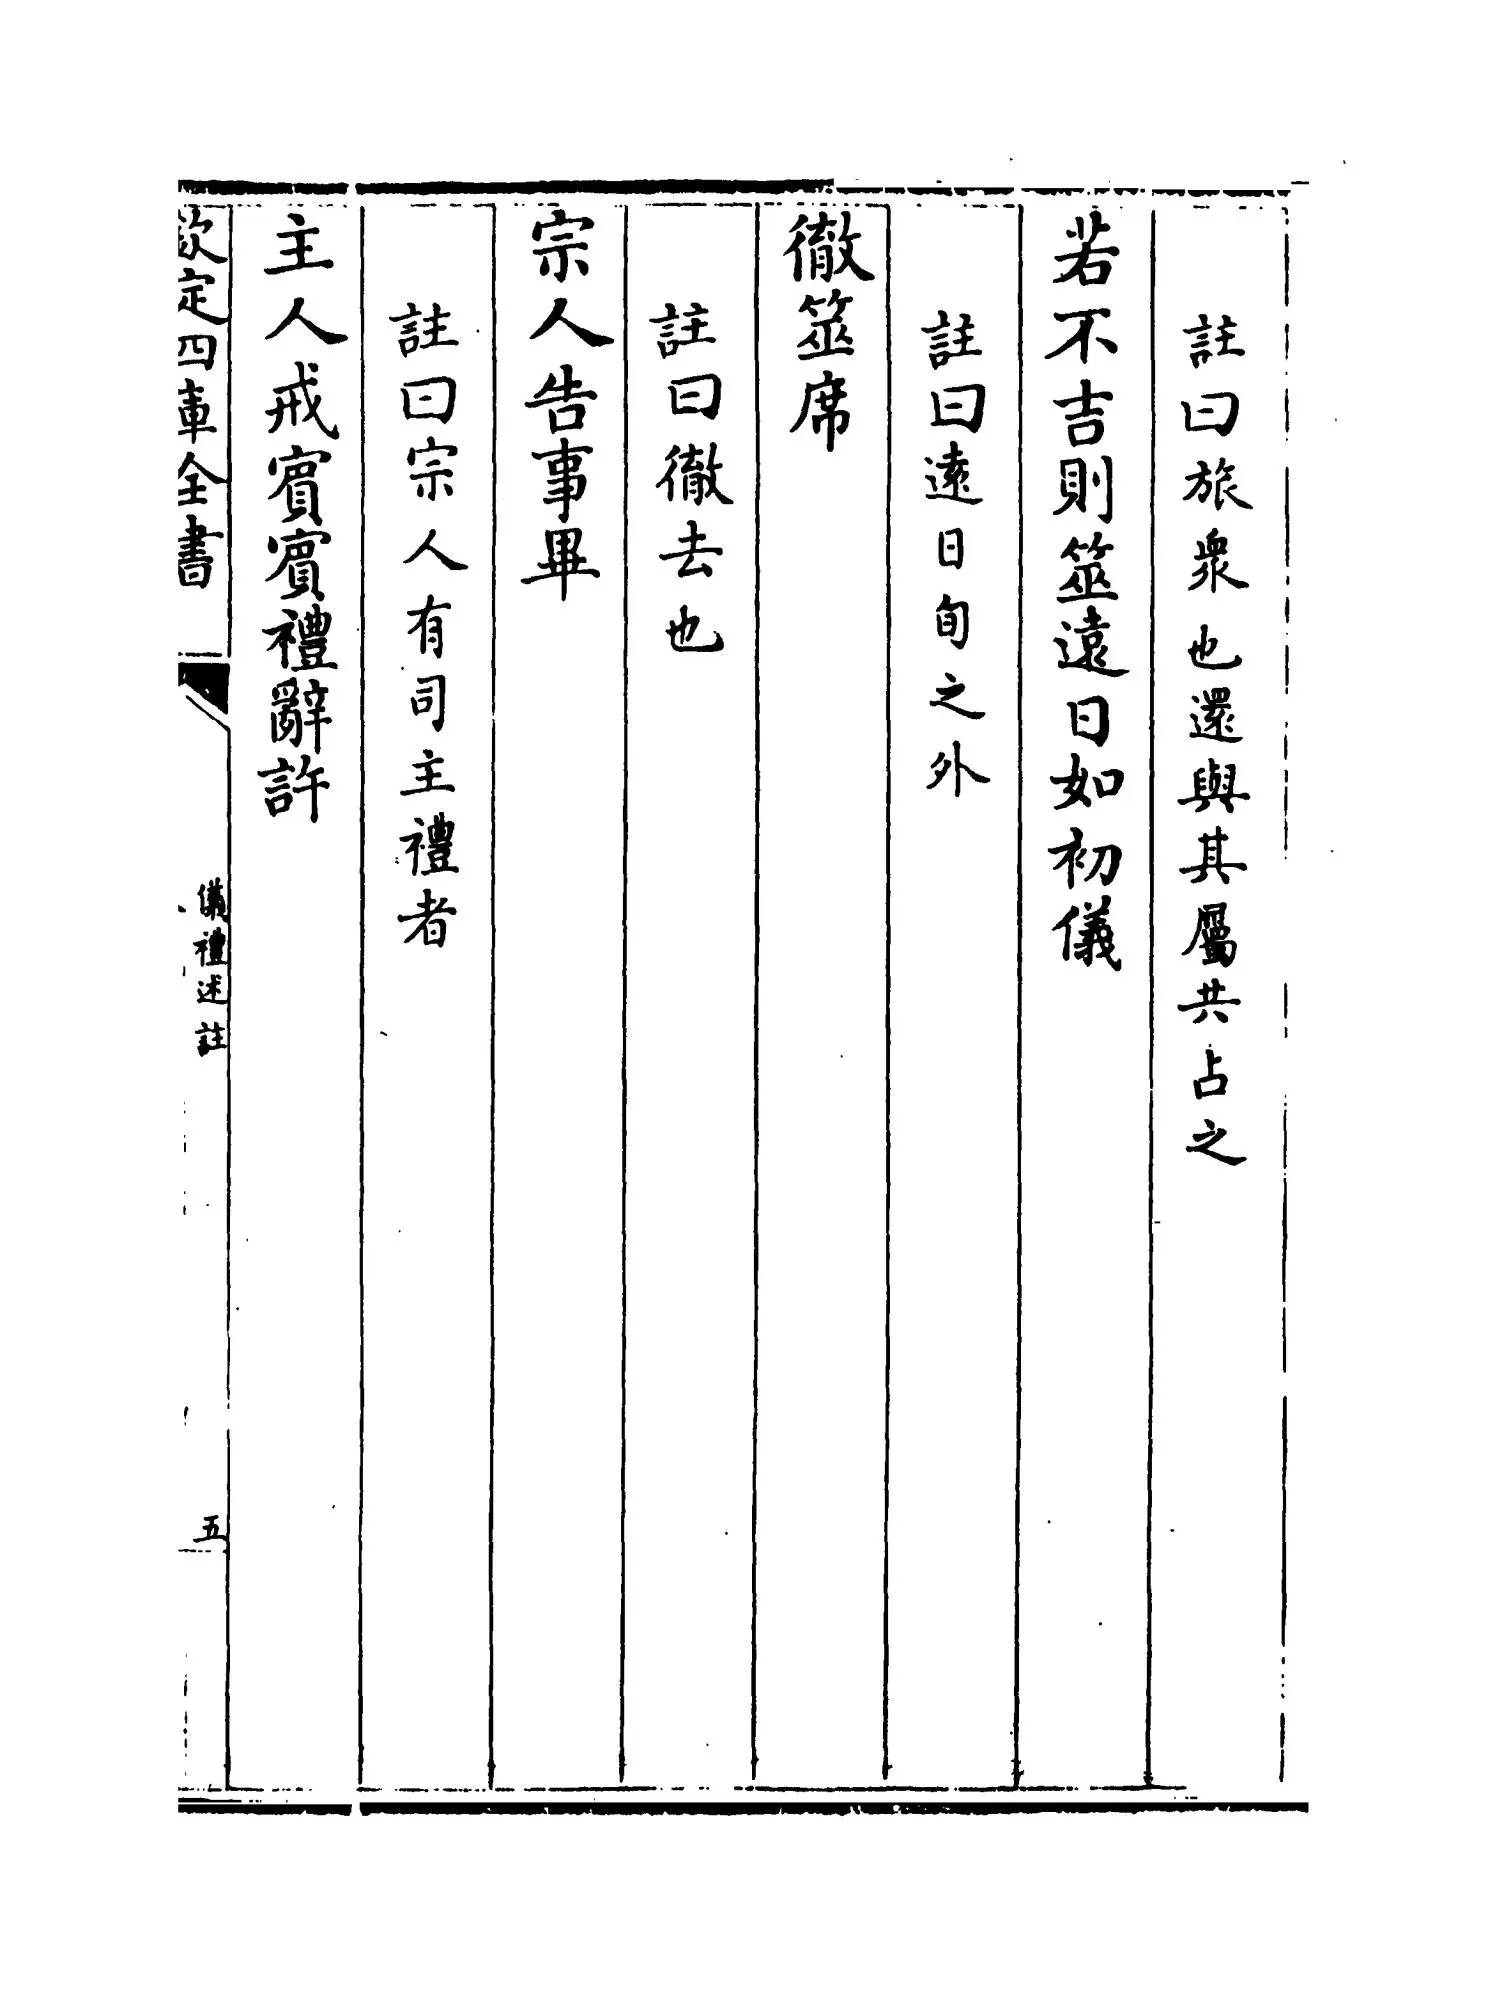 註曰旅衆也還與其屬共占之
若不吉則筮遠日如初儀
註曰遠日旬之外
徹筮席
註曰徹去也
宗人告事畢
註曰宗人有司主禮者
主人戒賓賓禮辭許
欽定四庫全書
儀禮述註
五